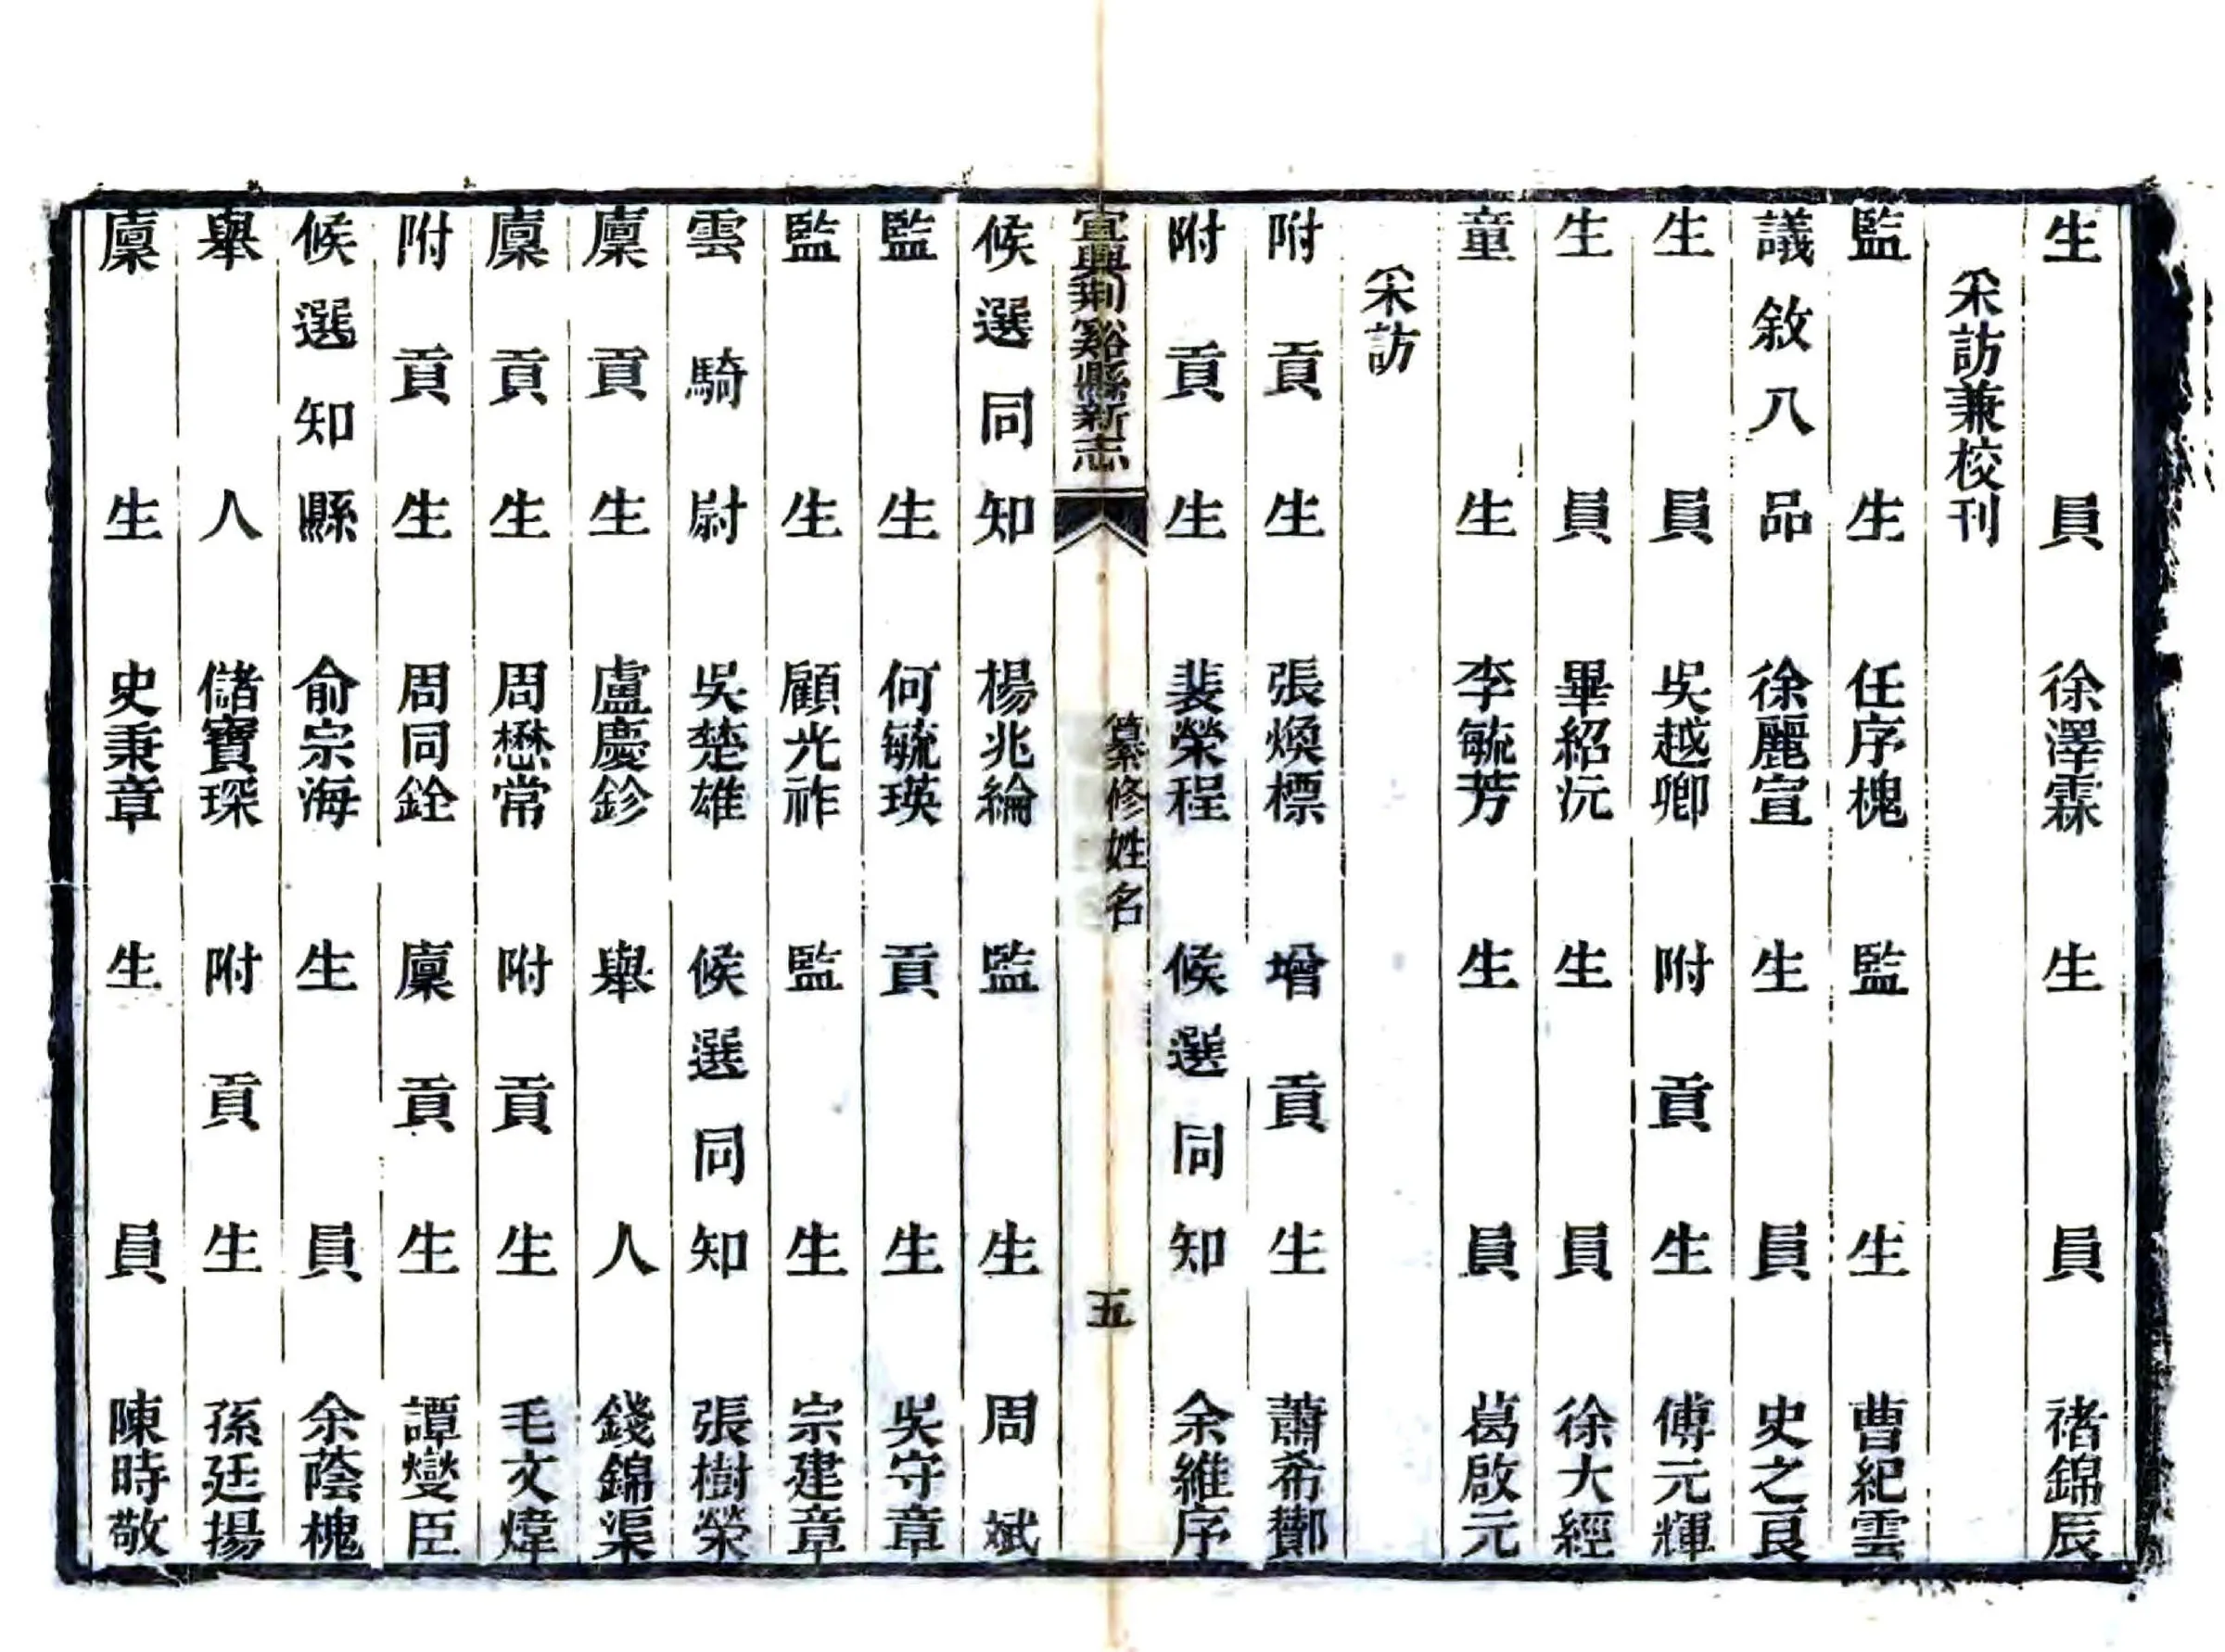 生員 徐澤霖 生員 褚錦辰
采訪兼校刊
監生 任序槐 監生 曹紀雲
議敘八品 徐麗宣 生員 史之良
生員 吳越卿 附貢生 傅元輝
生員 畢紹沅 生員 徐大經
童生 李毓芳 生員 葛啟元
采訪
附貢生 張煥標 增貢生 蕭希酇
附貢生 裴榮程 候選同知 余維序
宜興荆谿縣新志 纂修姓名 五
候選同知 楊兆綸 監生 周斌
監生 何毓瑛 貢生 吳守章
監生 顧光祚 監生 宗建章
雲騎尉 吳楚雄 候選同知 張樹榮
廩貢生 盧慶鈐 舉人 錢錦渠
廩貢生 周懋常 附貢生 毛文煒
附貢生 周同銓 廩貢生 譚燮臣
候選知縣 俞宗海 生員 余蔭槐
舉人 儲寶琛 附貢生 孫廷揚
廩生 史秉章 生員 陳時敬